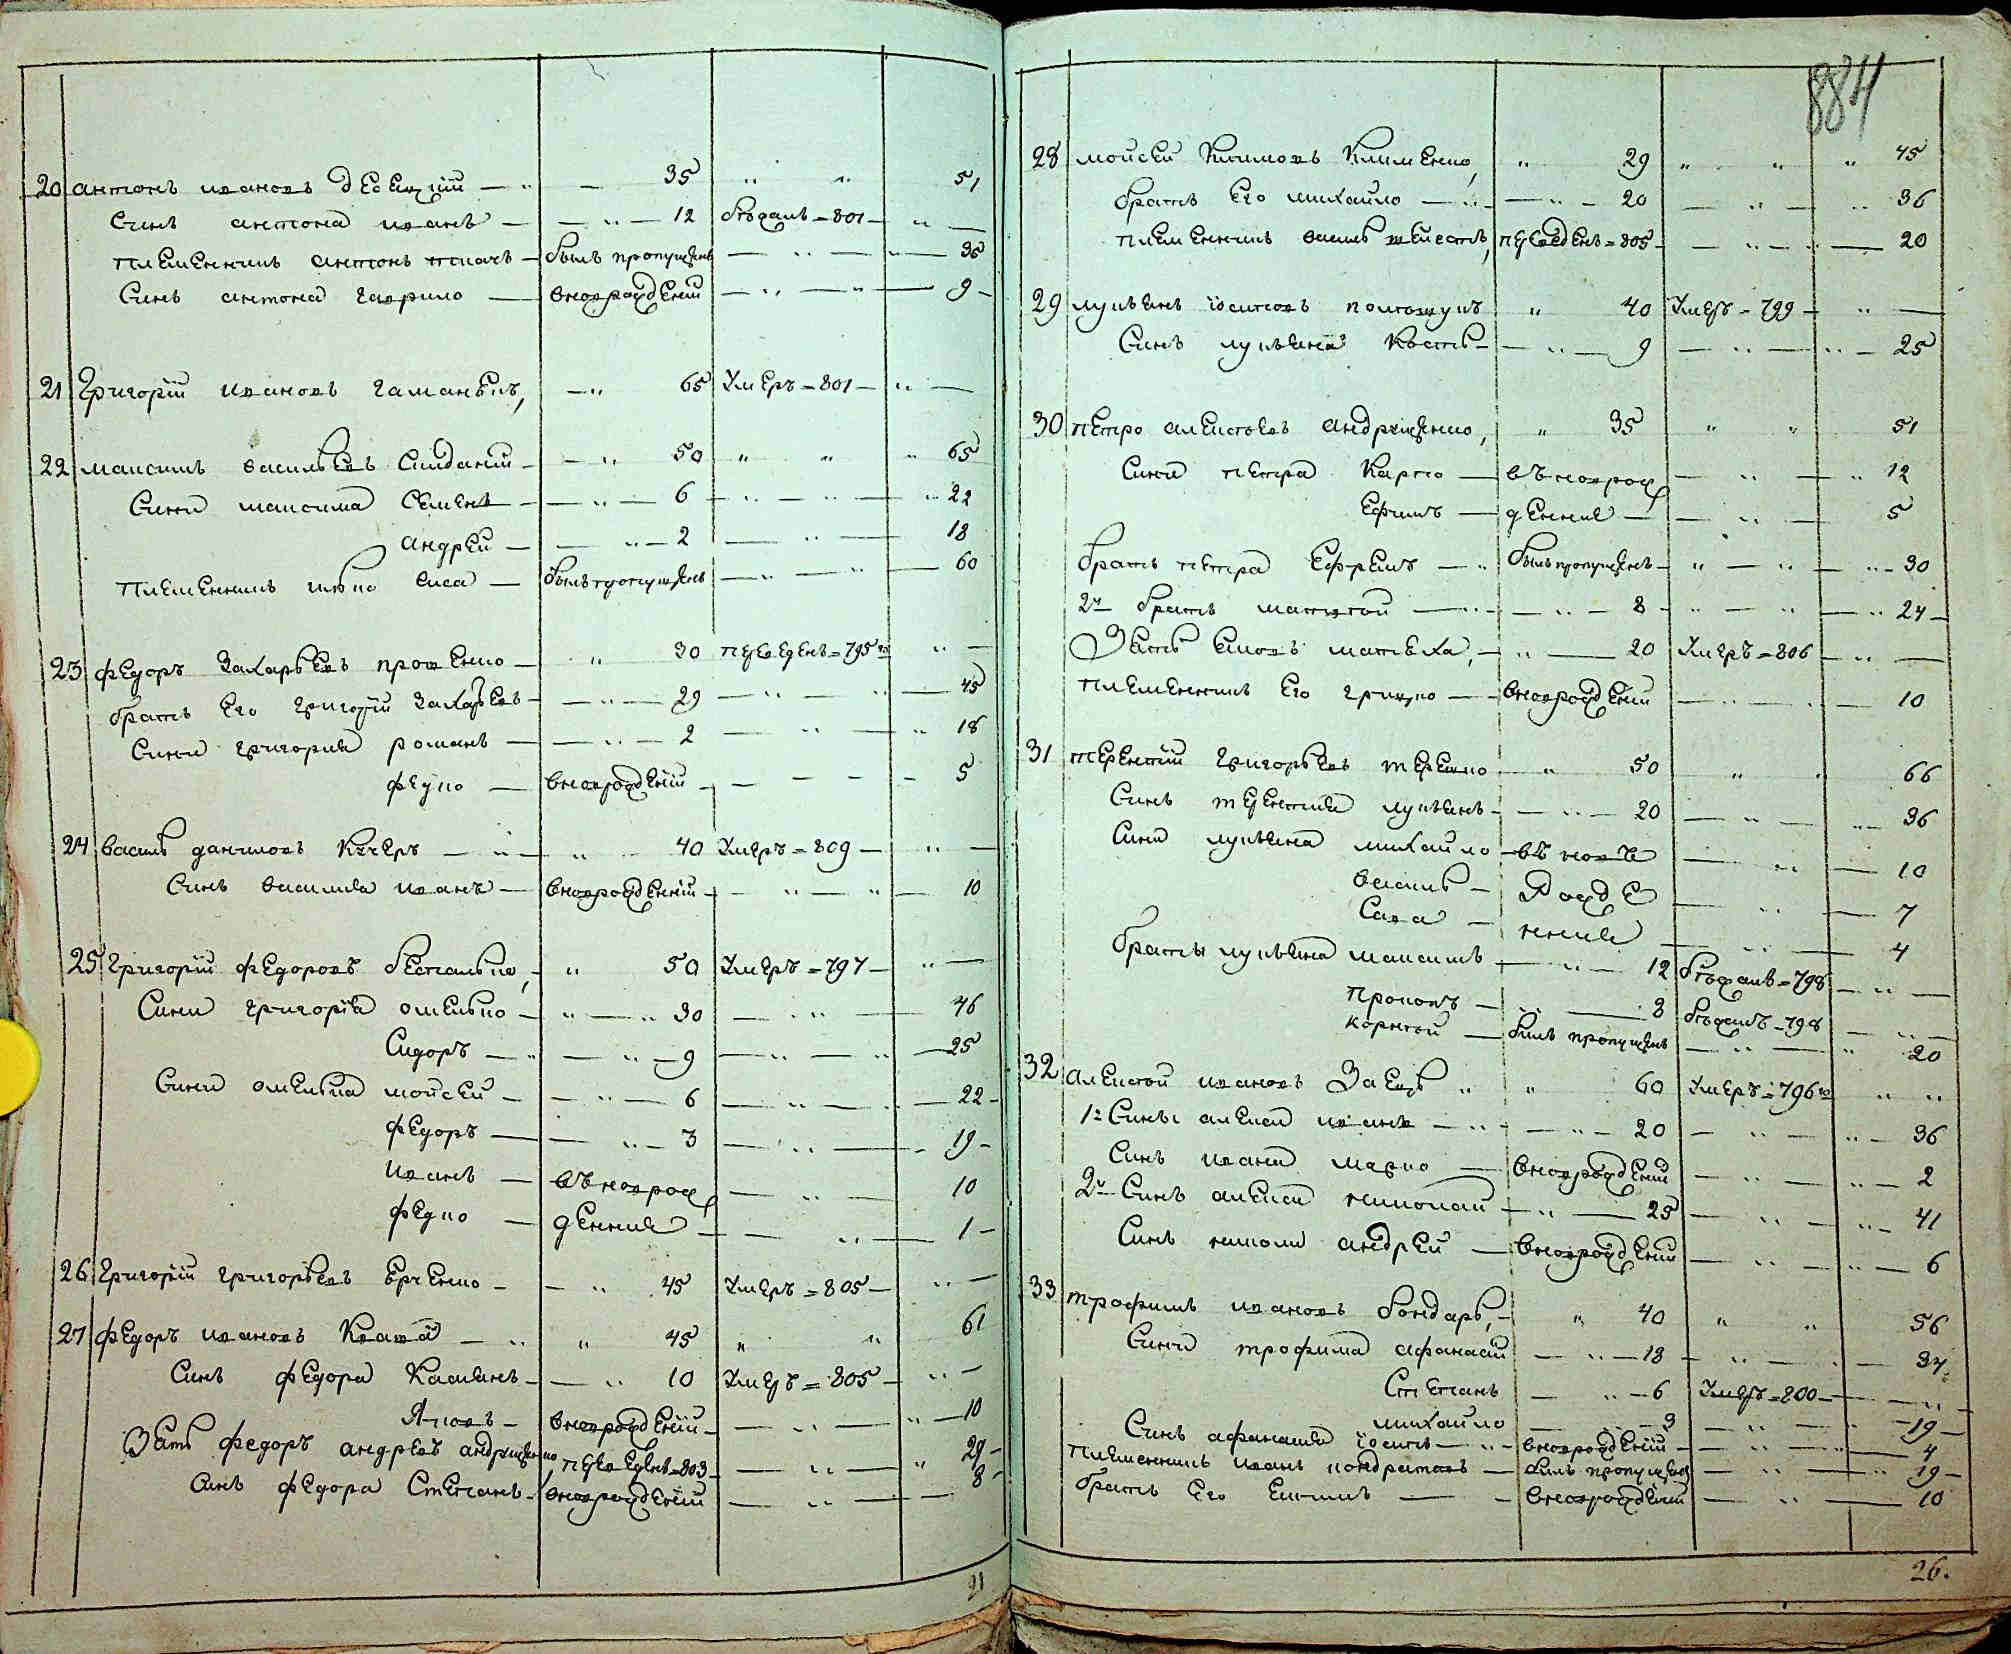 20 Антонъ Ивановъ Десецкїй — " — 35 " " 51
Синъ Антона Иванъ — — " — 12 бѣжалъ = 801 — " —
племенникъ Антонъ ткачъ — былъ пропущенъ — " — " — 36
Синъ Антона Гаврило — вновро­жденїй — " — " — 9 —
21 Григорїй Ивановъ Гаманецъ, — " 65 Умеръ = 801 — " —
22 Максимъ Васильевъ — " 50 " " " 65
Сини Максима Семенъ — — " — 6 — " — " — " 22
Андрей — — " — 2 — " — 18
племенникъ сиса — былъ пропущенъ — " — " — 60
23 Федоръ Захарьевъ — " 30 переведенъ = 795го " —
братъ Его Григорїй Захарьевъ — — " — 29 — " — " — 45
Сини Григорїя романъ — — " — 2 — " — " 18
федко — вноврожденїй — — — — 5
24 Василь даниловъ Кучеръ — " — " — 40 Умеръ = 809 — " —
Синъ Василия Иванъ — вноврожденнїй — — " — " — 10
25 Григорїй Федоровъ бесталько, — " 50 Умеръ = 797 — " —
Сини Григорїя Омелько — " — " 30 — " — 46
Сидоръ — " — " — 9 — " — " — 25
Сини Омелька мойсей — — " — 6 — " — " — 22 —
федоръ — — " — 3 — " — 19 —
Иванъ — въноврож — " — 10
федко — денния — — " — 1 —
26 Григорїй Григорьевъ Ерченко — — " 45 Умеръ = 805 — " —
27 Федоръ Ивановъ Кваша — " " 45 " " 61
Синъ федора Касянъ — — " 10 Умеръ = 805 — " —
Яковъ — вноврожденїй — — " — " — 10
Зять федоръ андреевъ андрущенко, переведенъ = 803 — — " — " 29 —
Синъ федора Степанъ — вноврожденїй — " — — 8 —
21
884
28 мойсей Климовъ Клименко, " 29 " " " 45
братъ Его михайло — " — — " — 20 — " — " 36
племенникъ василь, переведенъ = 805 — — " — " — 20
29 лукъянъ іосиповъ " 40 Умеръ = 799 — " —
Синъ лукъяна Кость — — " — 9 — " — " — 25
30 петро алексѣевъ андрущенко, " 35 " " 51
Сини петра Карпо — въноврож — " — " 12
Ефимъ — денния — — " — 5
братъ петра Ефремъ — " былъ пропущенъ — " — " — " — 30
2й братъ матвѣй — " — — " — 8 — " — " — " 24 —
Зять — " — 20 Умеръ = 806 — " —
племенникъ Его грицко — вноврожденїй — " — 10
31 терентїй Григорьевъ терешко — " 50 " " 66
Синъ терентия лукъянъ — — " — 20 — " — " 36
Сини лукъяна михайло — въ новѣ — " — 10
василь — рожде — " — 7
Сава — нния — " — 4
братъы лукъяна максимъ — " — 12 бѣжалъ = 798 — " —
прокопъ — " — 8 бѣжалъ = 798 — " —
корнѣй — былъ пропущенъ — " — " 20
32 Алексѣй Ивановъ Заецъ " " 60 Умеръ = 796го " "
1й Синъ алексея Иванъ — " — " — 20 — " — " — 36
Синъ Ивана марко — вноврожденїй — " — " — 2
2й Синъ алексея николай — " — 25 — " — " — 41
Синъ николи андрей — вноврожденїй — " — " — 6
33 трофимъ Ивановъ бондарь, — " 40 " " 56
Сини трофима афанасїй — " — 18 — " — — 34
Степанъ — " — 6 Умеръ = 800 — "
михайло — 3 — " — 19 —
Синъ афанасия іосипъ — " — вноврожденїй — — " — " — 4
племенникъ Иванъ кондратовъ — былъ пропущенъ — " — " 19 —
братъ Его — — вноврожденїй — " — 10
26.